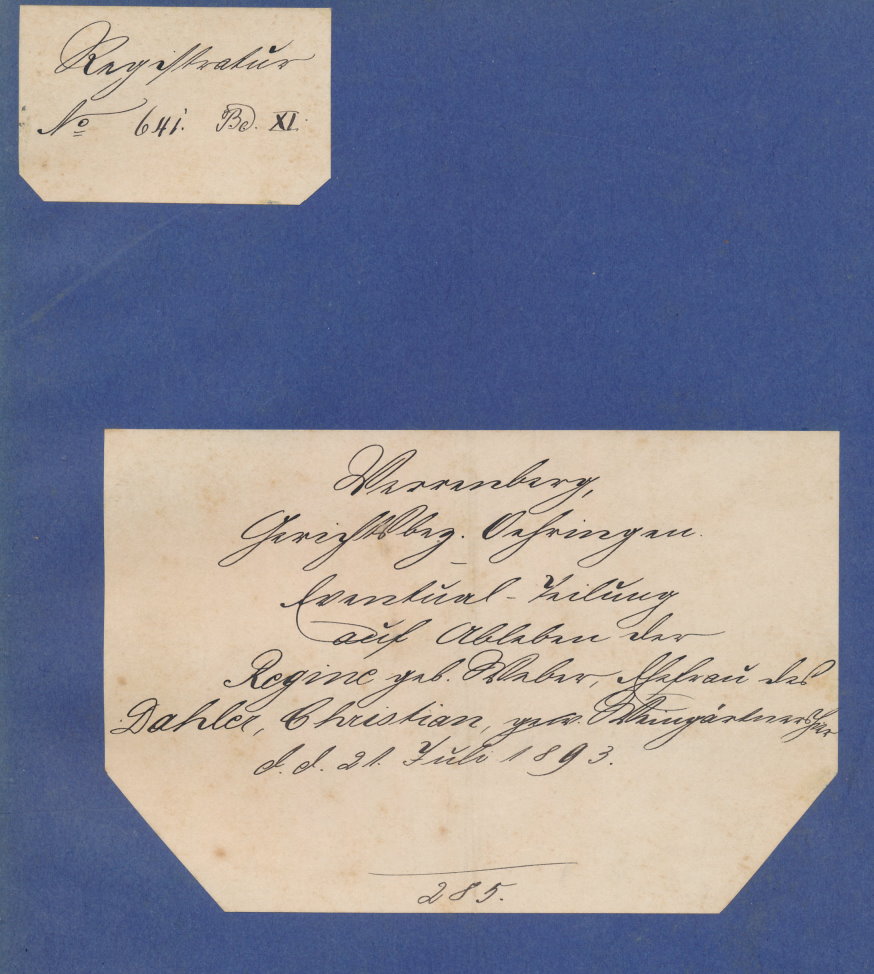 Registratur
No 641. Bd. XI.
Verrenberg,
Gerichtsbez. Oehringen.
Eventual-Teilung
auf Ableben der
Regine geb. Weber, Ehefrau des
Dahler, Christian, gew. Weingärtners hier
d. d. 21. Juli 1893.
285.